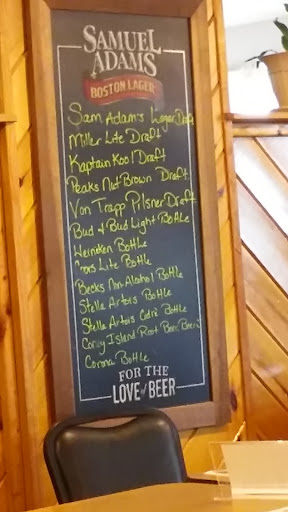 SAMUEL
ADAMS
BOSTON LAGER
Sam Adams Lager Draft
Miller Lite Draft
Kaptain Kool Draft
Peaks Nut Brown Draft
Von Trapp Pilsner Draft
Bud & Bud Light Bottle
Heineken Bottle
Coors Lite Bottle
Becks Non-Alcohol Bottle
Stella Artois Bottle
Stella Artois Bottle
Coney Island Root Beer
Corona Bottle
FOR THE
LOVE of BEER